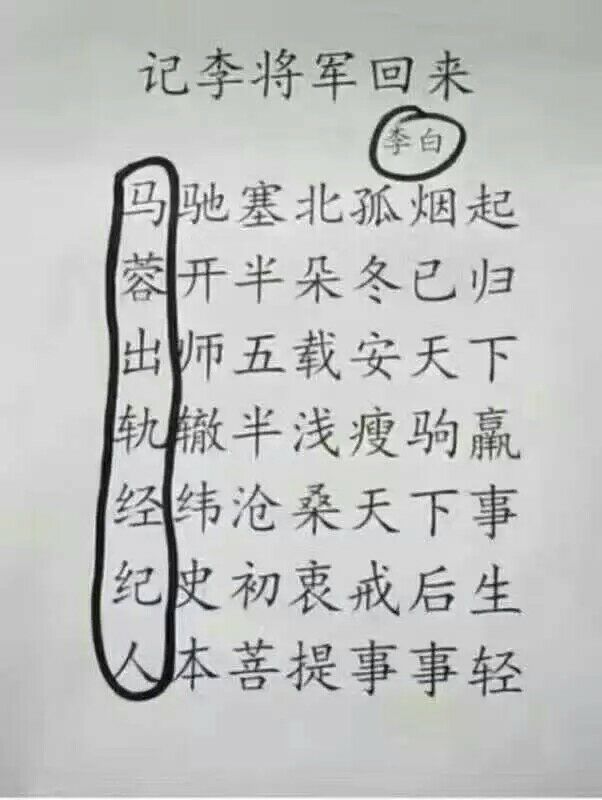 记李将军回来
李白
马驰塞北孤烟起
蓉开半朵冬已归
出师五载安天下
轨辙半浅瘦驹羸
经纬沧桑天下事
纪史初衷戒后生
人本菩提事事轻